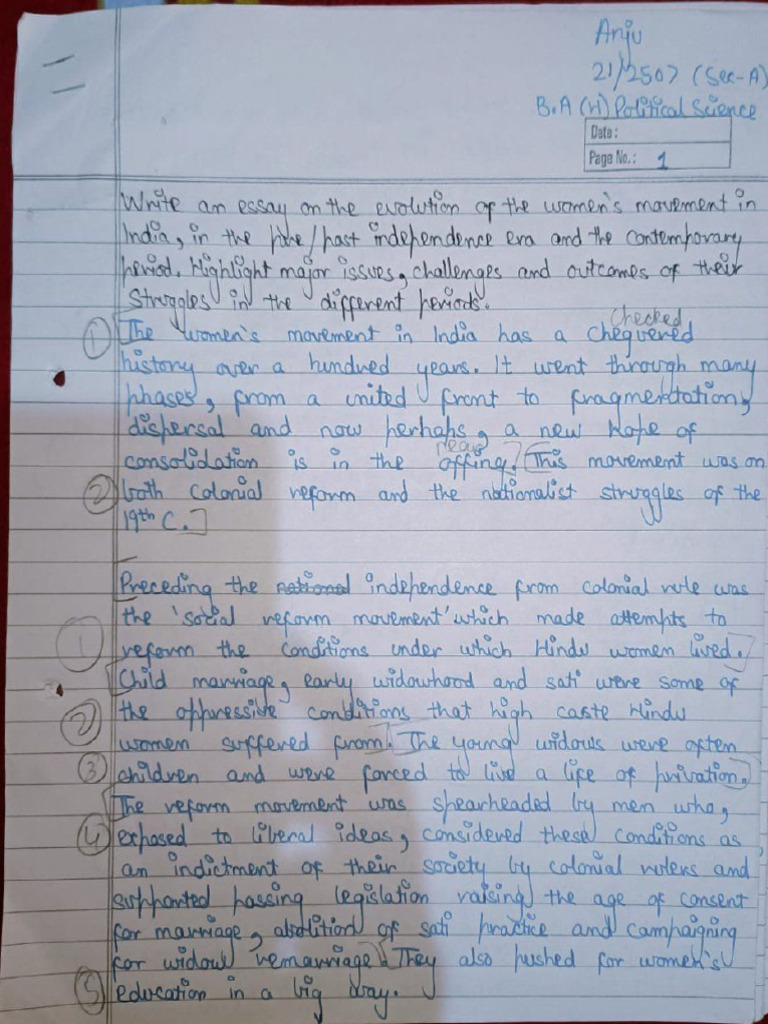 Anju
21/2507 (Sec-A)
B.A (H) Political Science
Date:
Page No.: 1
Write an essay on the evolution of the women's movement in
India, in the pre/post independence era and the contemporary
period. Highlight major issues, challenges and outcomes of their
Struggles in the different periods.
Checked
① The women's movement in India has a chequered
history over a hundred years. It went through many
phases, from a united front to fragmentation,
dispersal and now perhaps, a new hope of
near
consolidation is in the offing. This movement was on
② both colonial reform and the nationalist struggles of the
19th C.
Preceding the national independence from colonial rule was
the 'social reform movement' which made attempts to
① reform the conditions under which Hindu women lived.
Child marriage, early widowhood and sati were some of
② the oppressive conditions that high caste Hindu
women suffered from. The young widows were often
③ children and were forced to live a life of privation.
The reform movement was spearheaded by men who,
④ exposed to liberal ideas, considered these conditions as
an indictment of their society by colonial rulers and
supported passing legislation raising the age of consent
for marriage, abolition of sati practice and campaigning
for widow remarriage. They also pushed for women's
⑤ education in a big way.